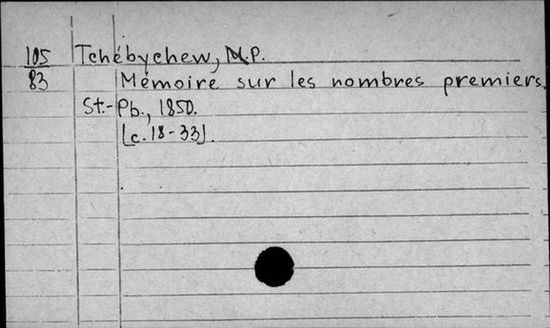 105 Tchébychew, M.P.
83 Mémoire sur les nombres premiers.
St.-Pb., 1850.
[c. 18-33].